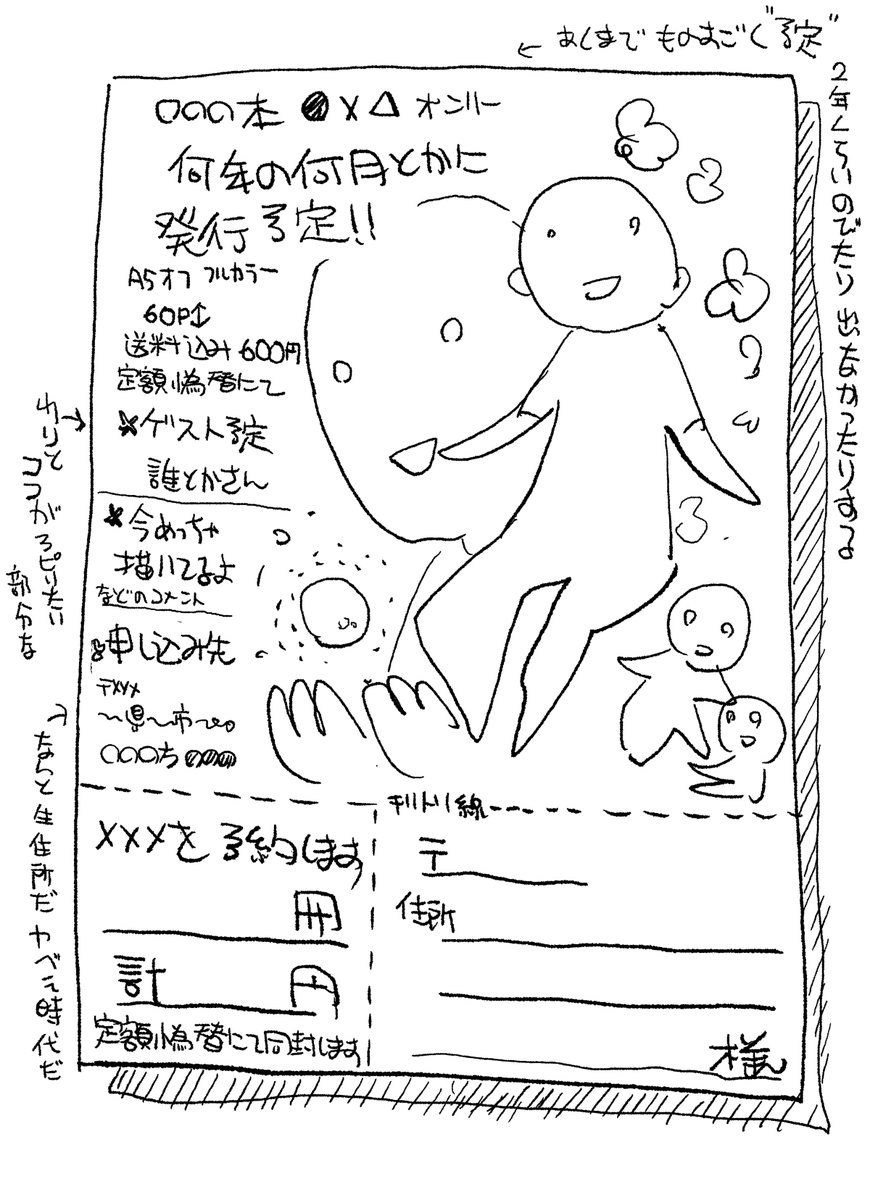 ← あくまで ものすごく“予定”
2年くらいのびたり 出なかったりする
〇〇〇の本 ●×△ オンリー
何年の何月とかに
発行予定!!
A5オフ フルカラー
60P↑
送料込み600円
定額小為替にて
★ゲスト予定
誰とかさん
わりと
ココがろぴりたい
部分な
★今めっちゃ
描いてるよ
などのコメント
申し込み先
〒xyx
〜県〜市〜。
〇〇〇ち●●●
なんと生住所だ ヤベえ時代だ
キリトリ線
XXXを予約します
冊
計 円
定額小為替にて同封します
〒
住所
様